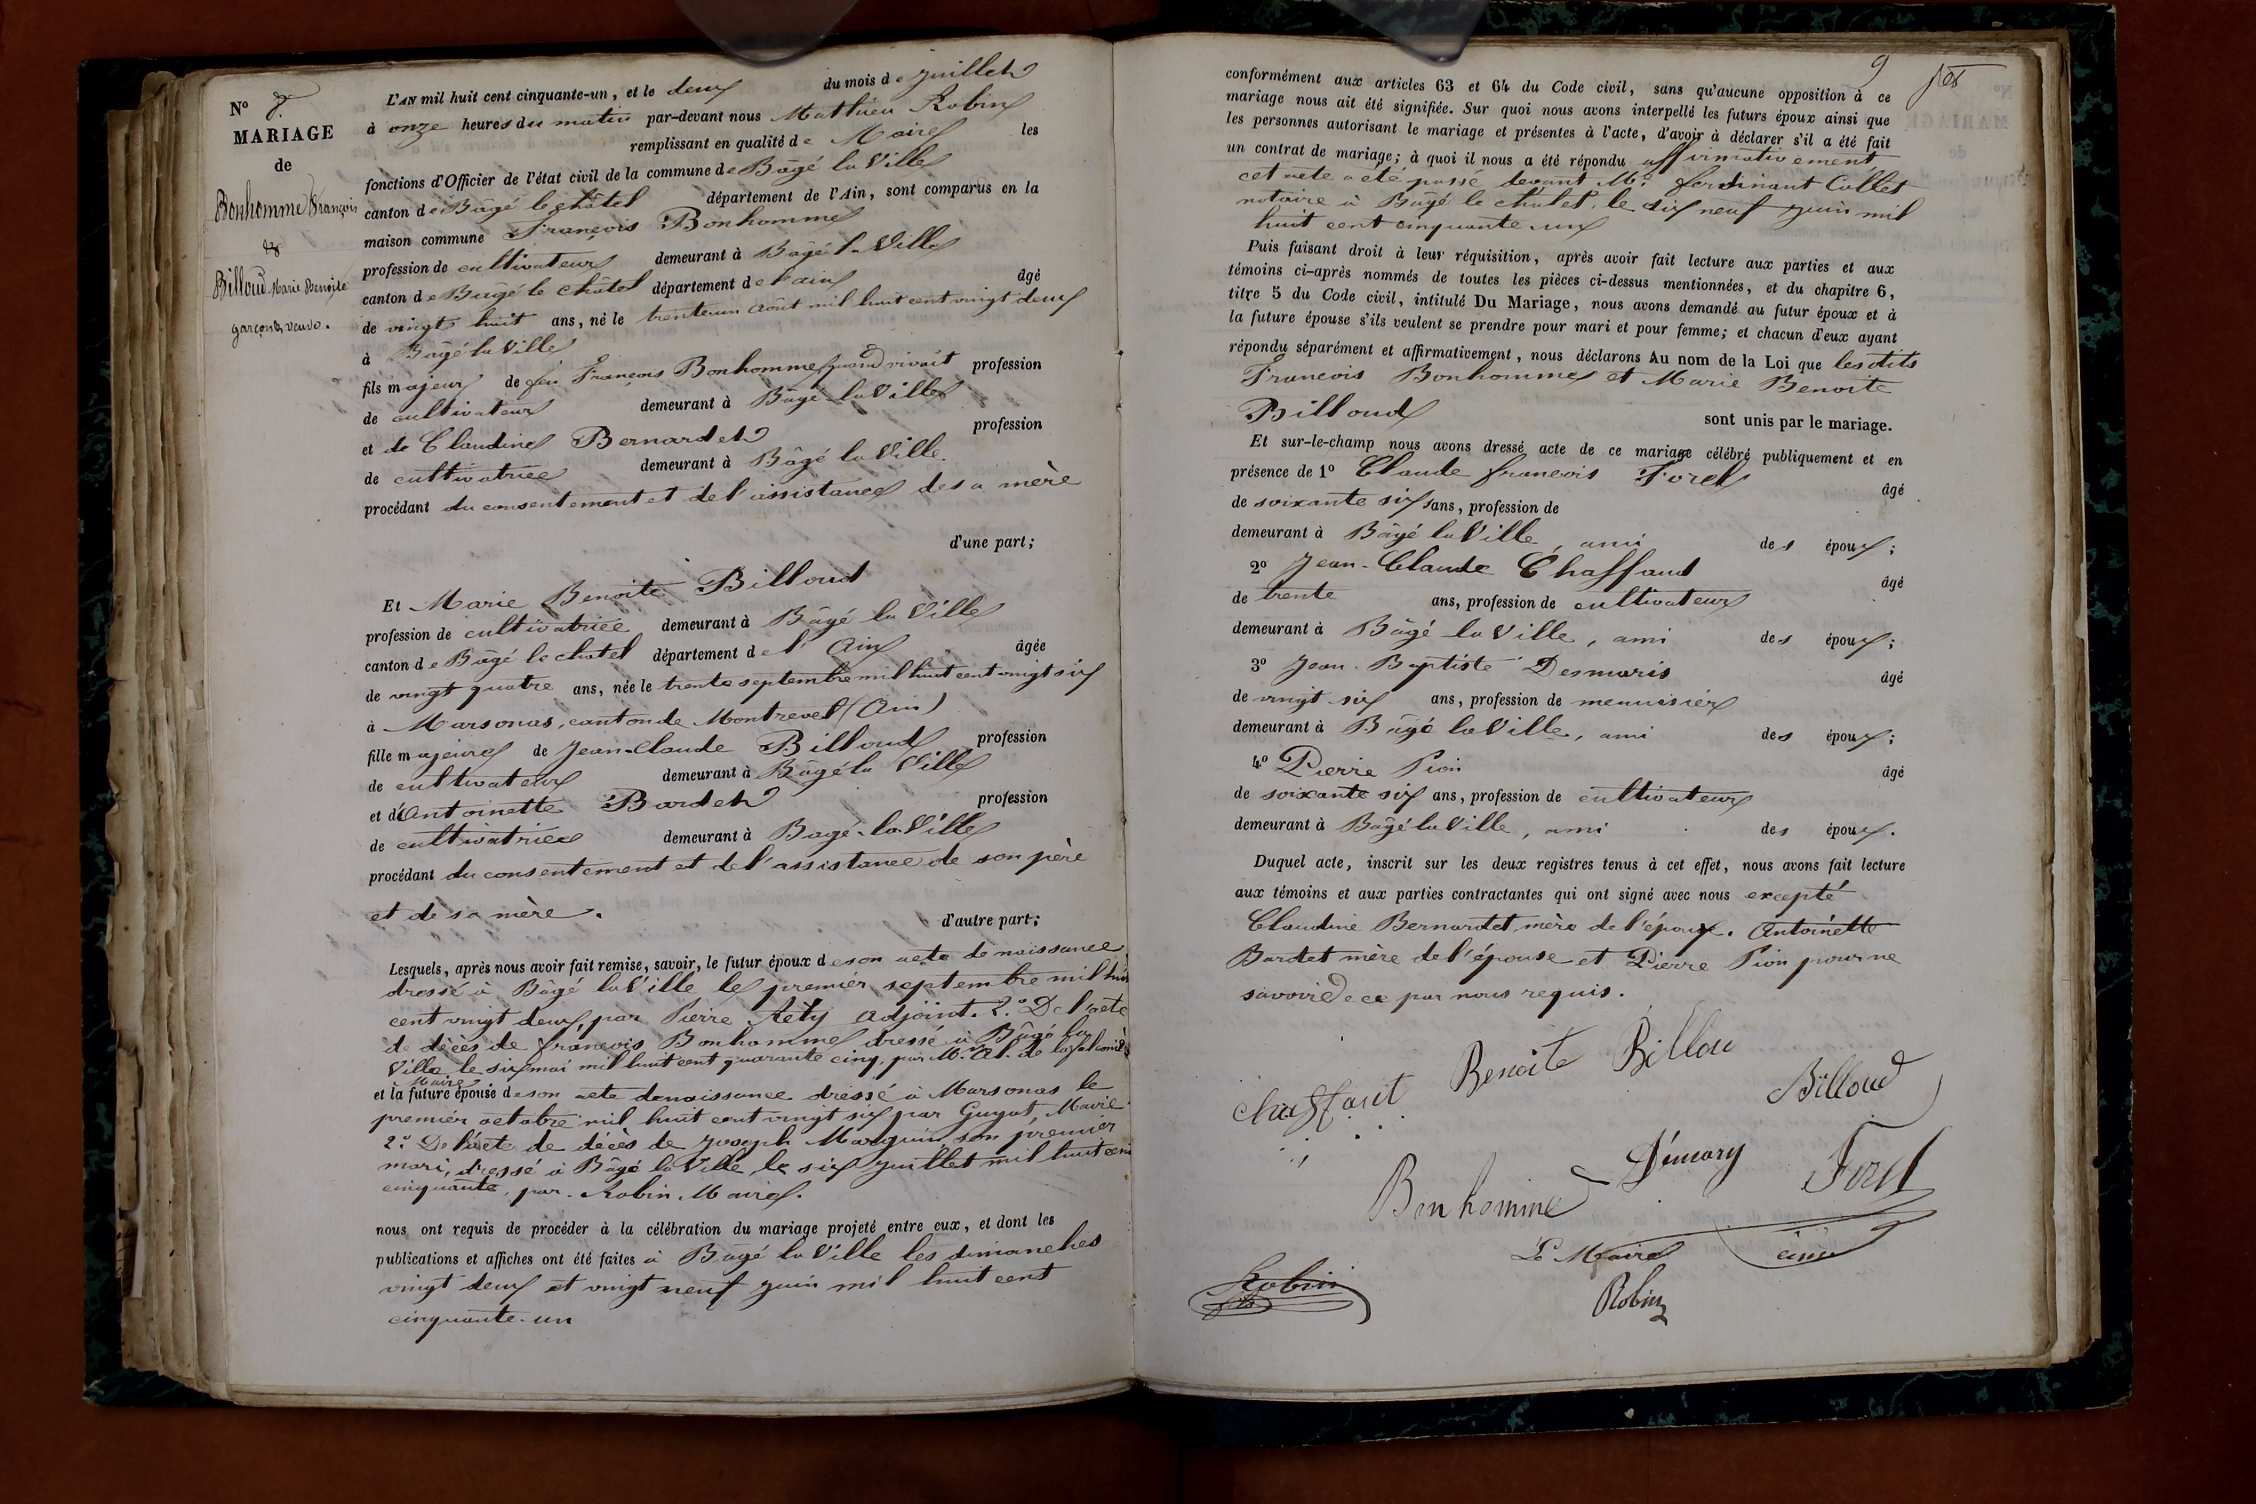 N° 8.
MARIAGE
de
Bonhomme François
&
Billoud Marie Benoite
garçon & veuve.
L'AN mil huit cent cinquante-un, et le deux du mois de juillet
à onze heures du matin par-devant nous Mathieu Robin
remplissant en qualité de Maire les
fonctions d'Officier de l'état civil de la commune de Bâgé la Ville
canton de Bâgé le châtel département de l'Ain, sont comparus en la
maison commune François Bonhomme
profession de cultivateur demeurant à Bâgé la Ville
canton de Bâgé le châtel département de l'ain âgé
de vingt huit ans, né le trente un août mil huit cent vingt deux
à Bâgé la Ville
fils majeur de feu François Bonhomme quand vivait profession
de cultivateur demeurant à Bâgé la Ville
et de Claudine Bernardet profession
de cultivatrice demeurant à Bâgé la Ville.
procédant du consentement et de l'assistance de sa mère
d'une part;
Et Marie Benoite Billoud
profession de cultivatrice demeurant à Bâgé la Ville
canton de Bâgé le chatel département de l'Ain âgée
de vingt quatre ans, née le trente septembre mil huit cent vingt six
à Marsonas, canton de Montrevel (Ain)
fille majeure de Jean-Claude Billoud profession
de cultivateur demeurant à Bâgé la Ville
et d'Antoinette Bardet profession
de cultivatrice demeurant à Bagé-la-Ville
procédant du consentement et de l'assistance de son père
et de sa mère. d'autre part;
Lesquels, après nous avoir fait remise, savoir, le futur époux de son acte de naissance
dressé à Bâgé la Ville le premier septembre mil huit
cent vingt deux, par Pierre Réty adjoint. 2° De l'acte
de décès de françois Bonhomme dressé à Bâgé la
Ville, le six mai mil huit cent quarante cinq, par Mr. Al. de
Maire
et la future épouse de son acte de naissance dressé à Marsonas le
premier octobre mil huit cent vingt six par Guyot, Maire
2° De l'acte de décès de Joseph Marguin son premier
mari, dressé à Bâgé la Ville, le six juillet mil huit cent
cinquante, par Robin Maire.
nous ont requis de procéder à la célébration du mariage projeté entre eux, et dont les
publications et affiches ont été faites à Bâgé la Ville les dimanches
vingt deux et vingt neuf juin mil huit cent
cinquante-un
9
conformément aux articles 63 et 64 du Code civil, sans qu'aucune opposition à ce
mariage nous ait été signifiée. Sur quoi nous avons interpellé les futurs époux ainsi que
les personnes autorisant le mariage et présentes à l'acte, d'avoir à déclarer s'il a été fait
un contrat de mariage; à quoi il nous a été répondu affirmativement
cet acte a été passé devant Me. ferdinant Collet
notaire à Bâgé le châtel, le dix neuf juin mil
huit cent cinquante un
Puis faisant droit à leur réquisition, après avoir fait lecture aux parties et aux
témoins ci-après nommés de toutes les pièces ci-dessus mentionnées, et du chapitre 6,
titre 5 du Code civil, intitulé Du Mariage, nous avons demandé au futur époux et à
la future épouse s'ils veulent se prendre pour mari et pour femme; et chacun d'eux ayant
répondu séparément et affirmativement, nous déclarons Au nom de la Loi que lesdits
Francois Bonhomme et Marie Benoite
Billoud sont unis par le mariage.
Et sur-le-champ nous avons dressé acte de ce mariage célébré publiquement et en
présence de 1° Claude françois Forel âgé
de soixante six ans, profession de
demeurant à Bâgé la Ville, ami des époux;
2° Jean-Claude Chaffaud âgé
de trente ans, profession de cultivateur
demeurant à Bâgé la Ville, ami des époux;
3° Jean-Baptiste Desmaris âgé
de vingt six ans, profession de menuisier
demeurant à Bâgé la Ville, ami des époux;
4° Pierre Pion âgé
de soixante six ans, profession de cultivateur
demeurant à Bâgé la Ville, ami des époux.
Duquel acte, inscrit sur les deux registres tenus à cet effet, nous avons fait lecture
aux témoins et aux parties contractantes qui ont signé avec nous excepté
Claudine Bernardet, mère de l'époux. Antoinette
Bardet mère de l'épouse et Pierre Pion pour ne
savoir de ce par nous requis.
Benoite Billou
Billoud
Chaffarit
Démary
Forel
Bonhomme
Le Maire
Robin
Robin